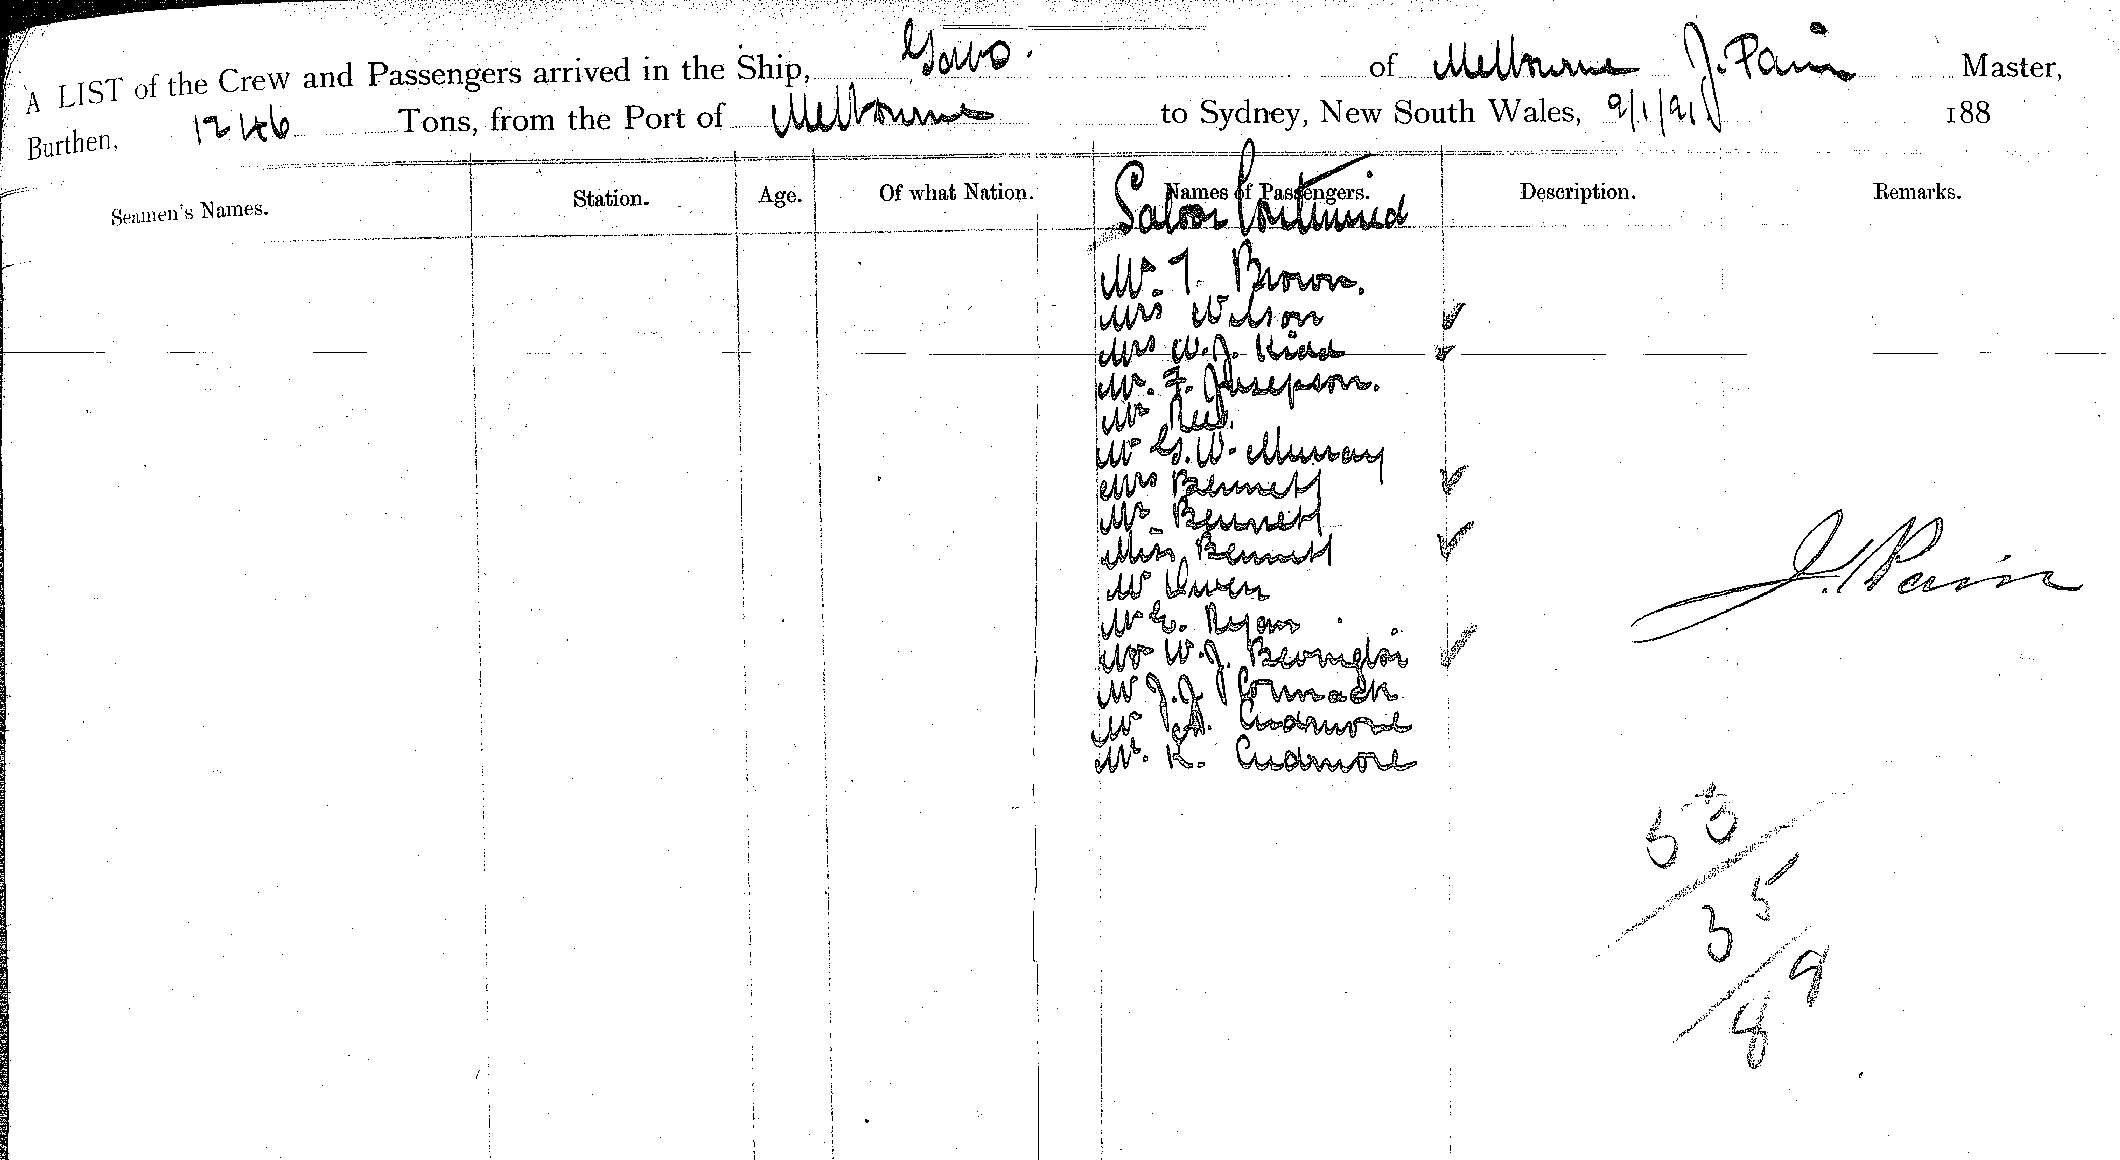 A LIST of the Crew and Passengers arrived in the Ship, Gabo. of Melbourne J. Pain Master,
Burthen, 1246 Tons, from the Port of Melbourne to Sydney, New South Wales, 9/1/91 188
Seamen's Names. Station. Age. Of what Nation. Names of Passengers. Description. Remarks.
Saloon Continued
Mr. T. Brown.
Mrs Wilson ✓
Mrs W. J. Kidd ✓
Mr. F. Josepson.
Mr Reed.
Mr G. W. Murray
Mrs Bennett ✓
Mr. Bennett
Miss Bennett ✓
Mr Owen
J. Pain
Mr E. Ryan
W. J. Bevington ✓
Mr J. J. Cormack
Mr Cudmore
Mr. K. Cudmore
53
35
88